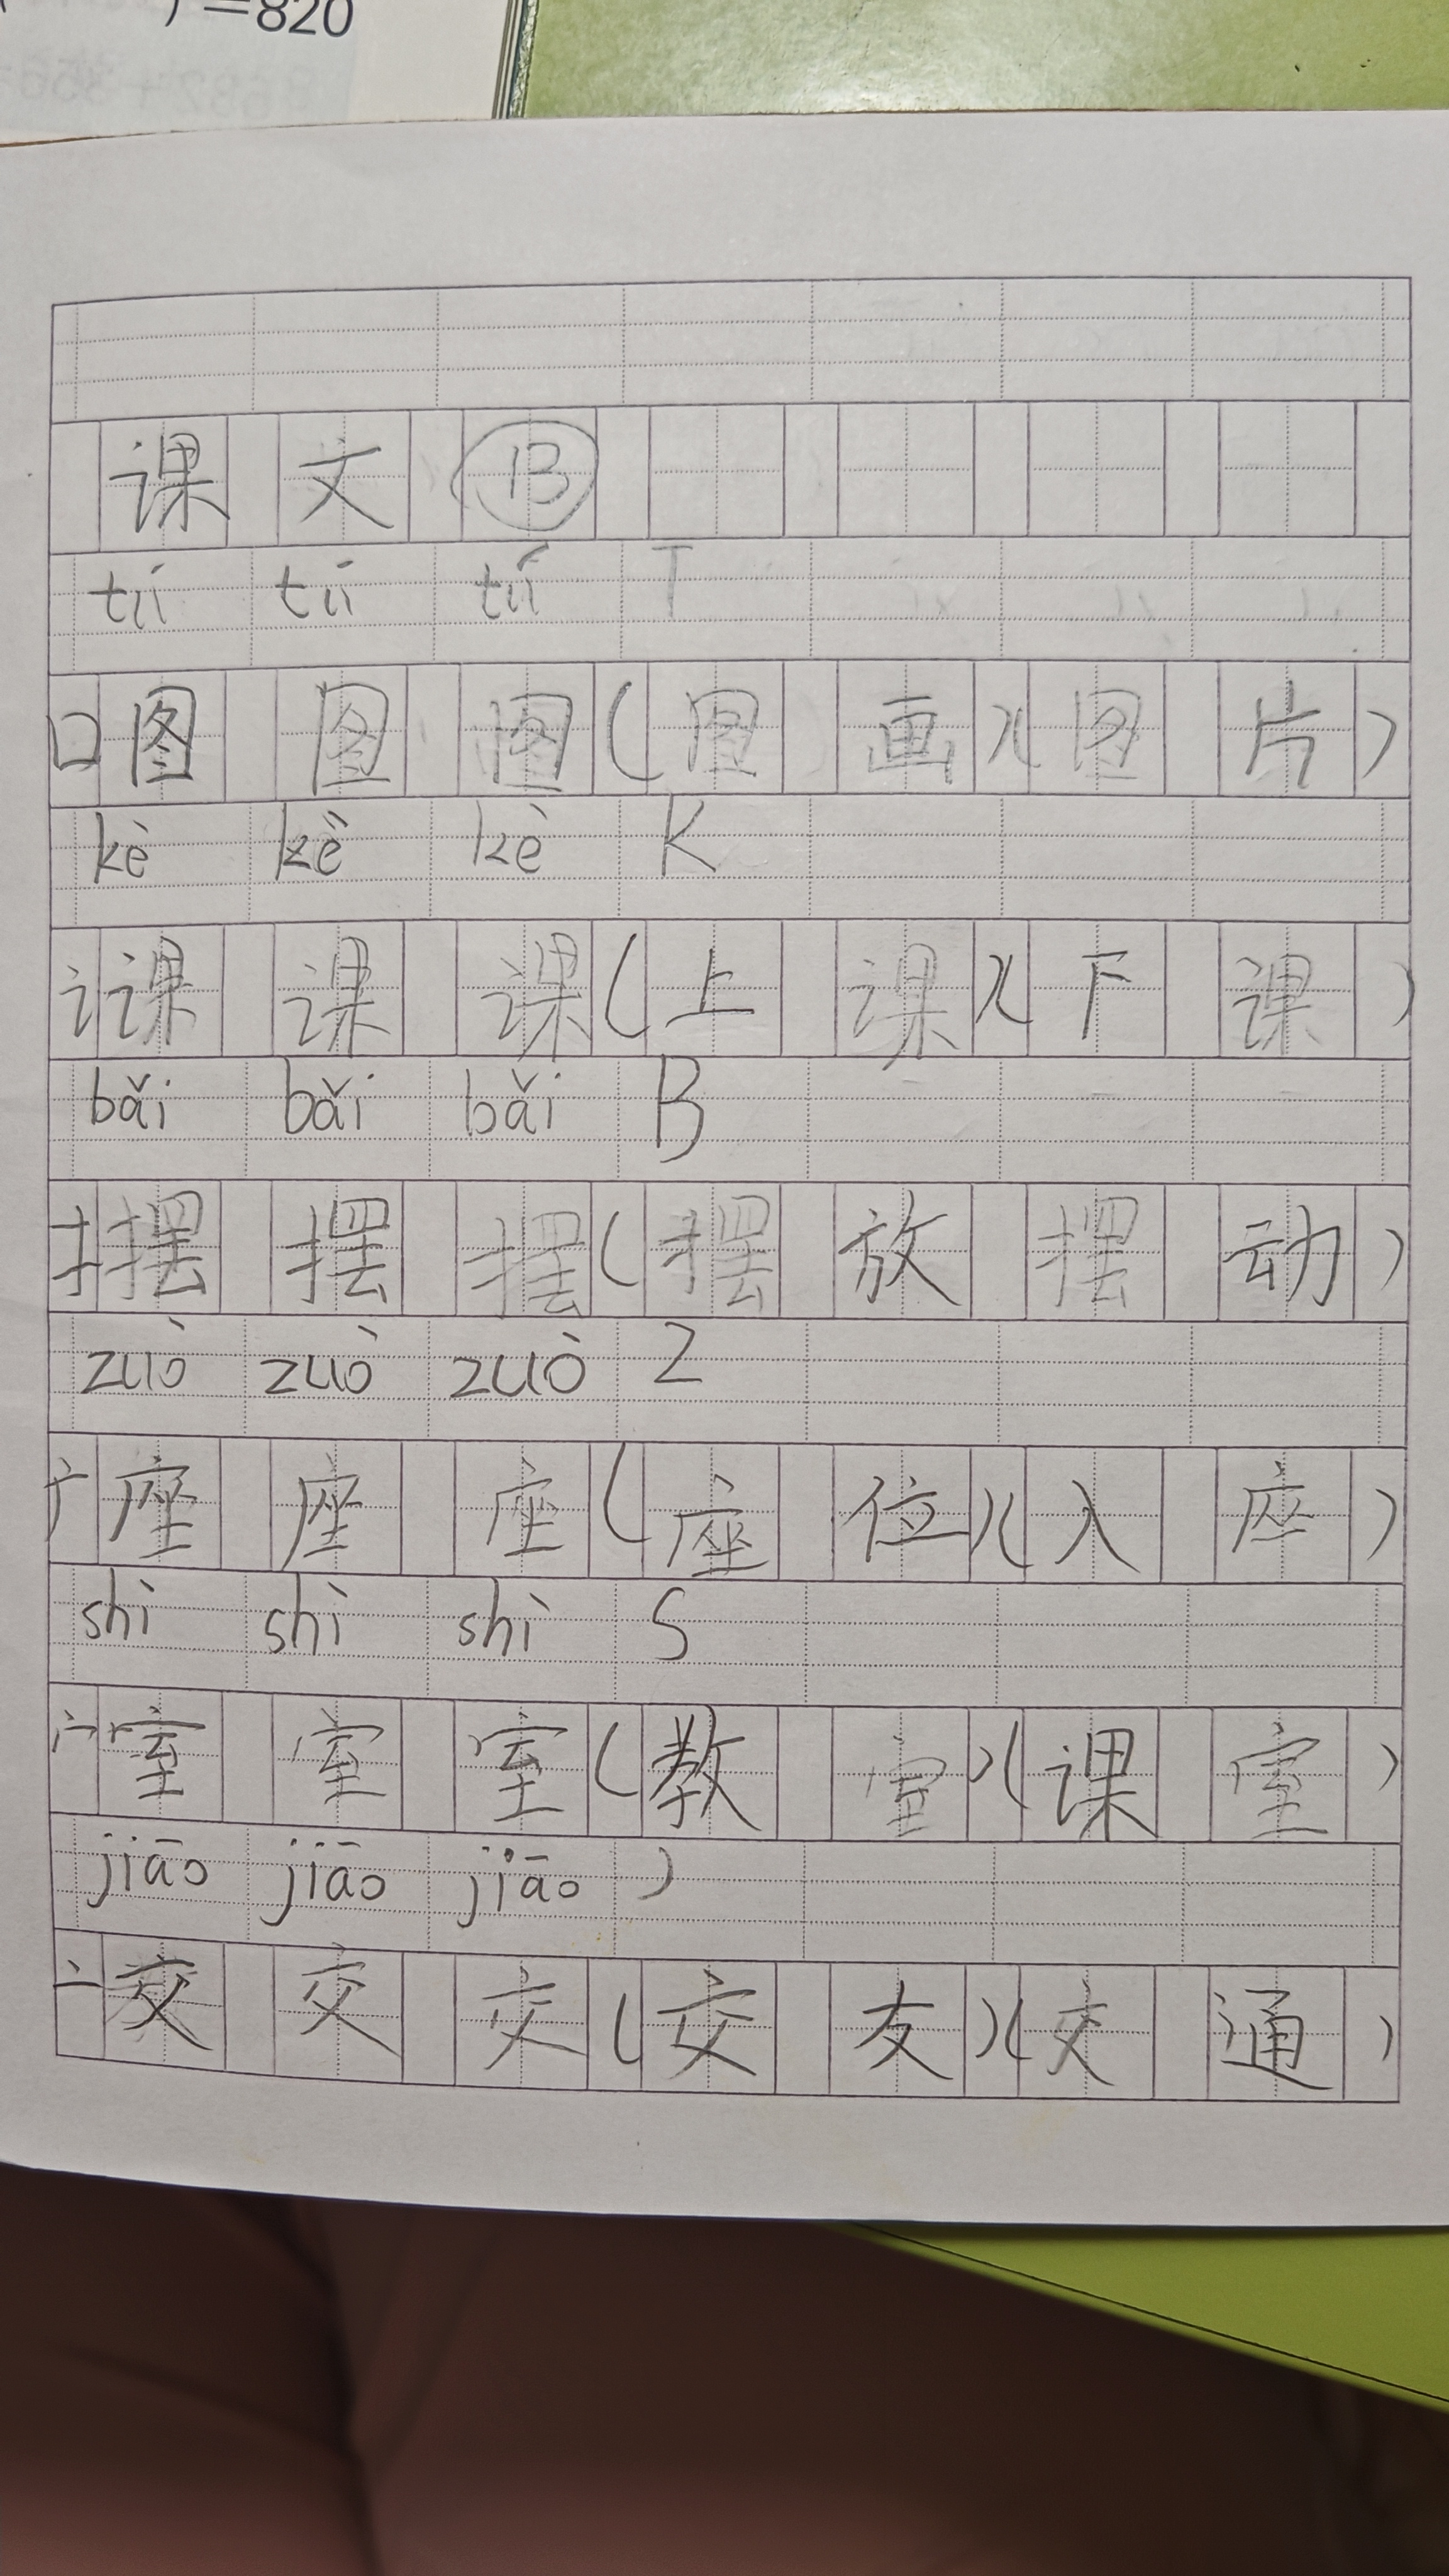 ) =820
课文⑬
tú tú tú T
口图 图 图(图画)(图片)
kè kè kè K
讠课 课 课(上课)(下课)
bǎi bǎi bǎi B
扌摆 摆 摆(摆放 摆动)
zuò zuò zuò Z
广座 座 座(座位)(入座)
shì shì shì S
宀室 室 室(教室)(课室)
jiāo jiāo jiāo J
亠交 交 交(交友)(交通)